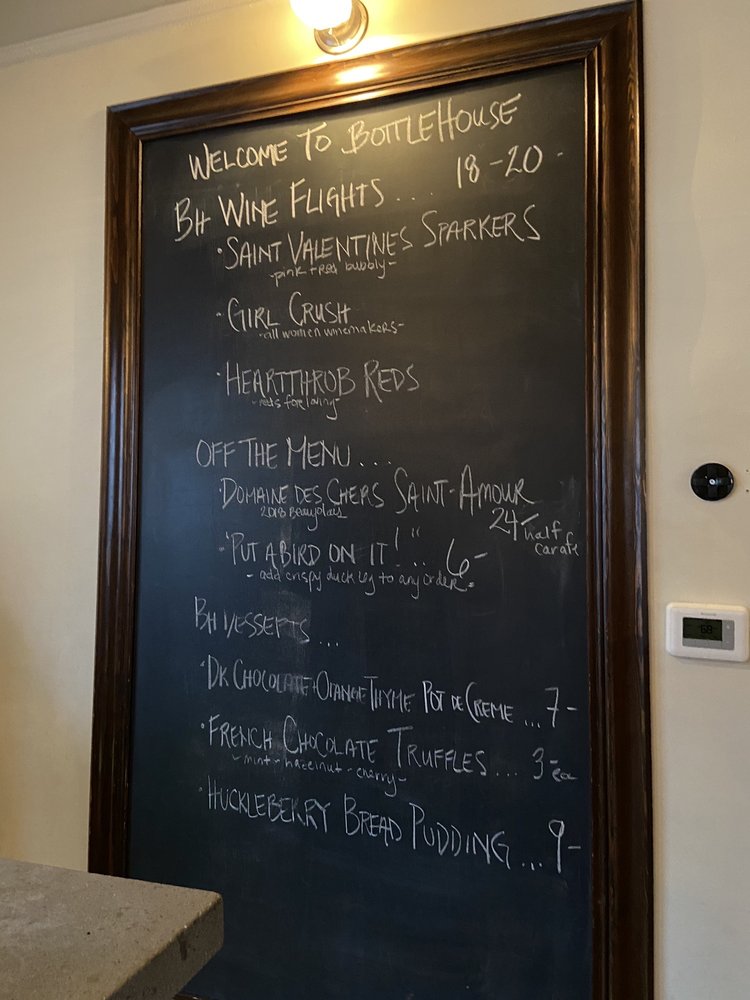 WELCOME TO BOTTLEHOUSE
BH WINE FLIGHTS.... 18-20-
·SAINT VALENTINES SPARKERS
-pink + red bubbly-
·GIRL CRUSH
-all women winemakers-
·HEARTTHROB REDS
-reds for loving-
OFF THE MENU...
·DOMAINE DES CHERS SAINT-AMOUR
2018 Beaujolais
24- half
carafe
·"PUT A BIRD ON IT!"... 6-
- add crispy duck leg to any order-
BH DESSERTS...
·DK CHOCOLATE+ORANGE THYME POT DE CREME...7-
·FRENCH CHOCOLATE TRUFFLES... 3-ea
-mint-hazelnut-cherry-
·HUCKLEBERRY BREAD PUDDING...9-
68